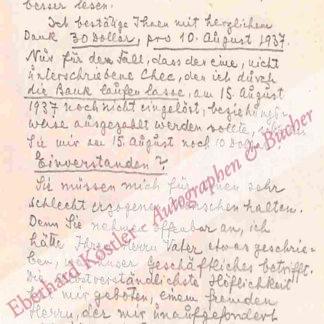 besser lesen.
Ich bestätige Ihnen mit herzlichem
Dank 30 Dollar, pro 10. August 1937.
Nur für den Fall, dass der eine, nicht
unterschriebene Chec, den ich durch
die Bank laufen lasse, am 15. August
1937 noch nicht eingelöst, beziehungs-
weise ausgezahlt werden sollte,
Sie mir am 15. August noch 10 Dollar
Einverstanden?
Sie müssen mich für einen sehr
schlecht erzogenen Menschen halten.
Denn Sie nehmen offenbar an, ich
hätte Ihrem Herrn Vater etwas geschrie-
ben, was unser Geschäftliches betrifft.
Die selbstverständlichste Höflichkeit
mir geboten, einem fremden
Herrn, der mir unaufgefordert
Eberhard Köstler Autographen & Bücher